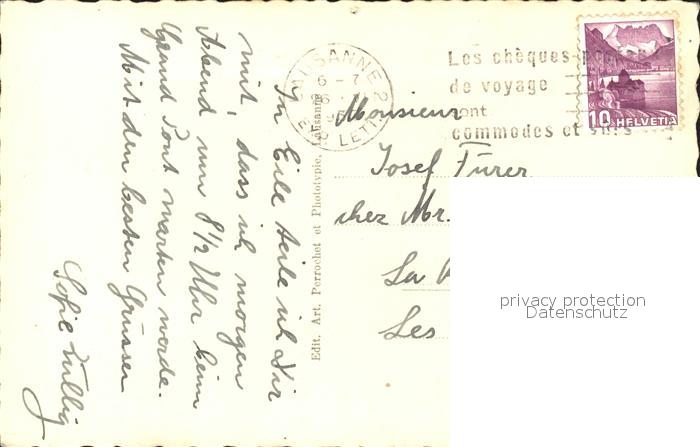 In Eile teile ich Dir
mit, dass ich morgen
Abend um 8 1/2 Uhr beim
Grand Pont warten werde.
Mit den besten Grüssen
Sofie
Edit. Art. Perrochet et Phototypie, Lausanne
LAUSANNE 2
EXP. LETTR.
Les chèques
de voyage
sont
commodes et sûrs
10 HELVETIA
Monsieur
Josef Furer
chez Mr.
La
Les
privacy protection
Datenschutz